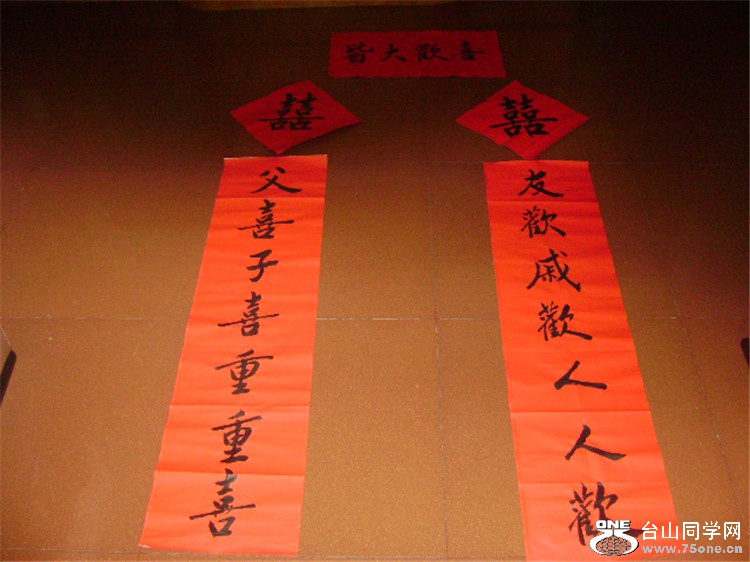 皆大歡喜
囍
囍
父喜子喜重重喜
友歡戚歡人人歡
ONE
台山同学网
www.75one.cn